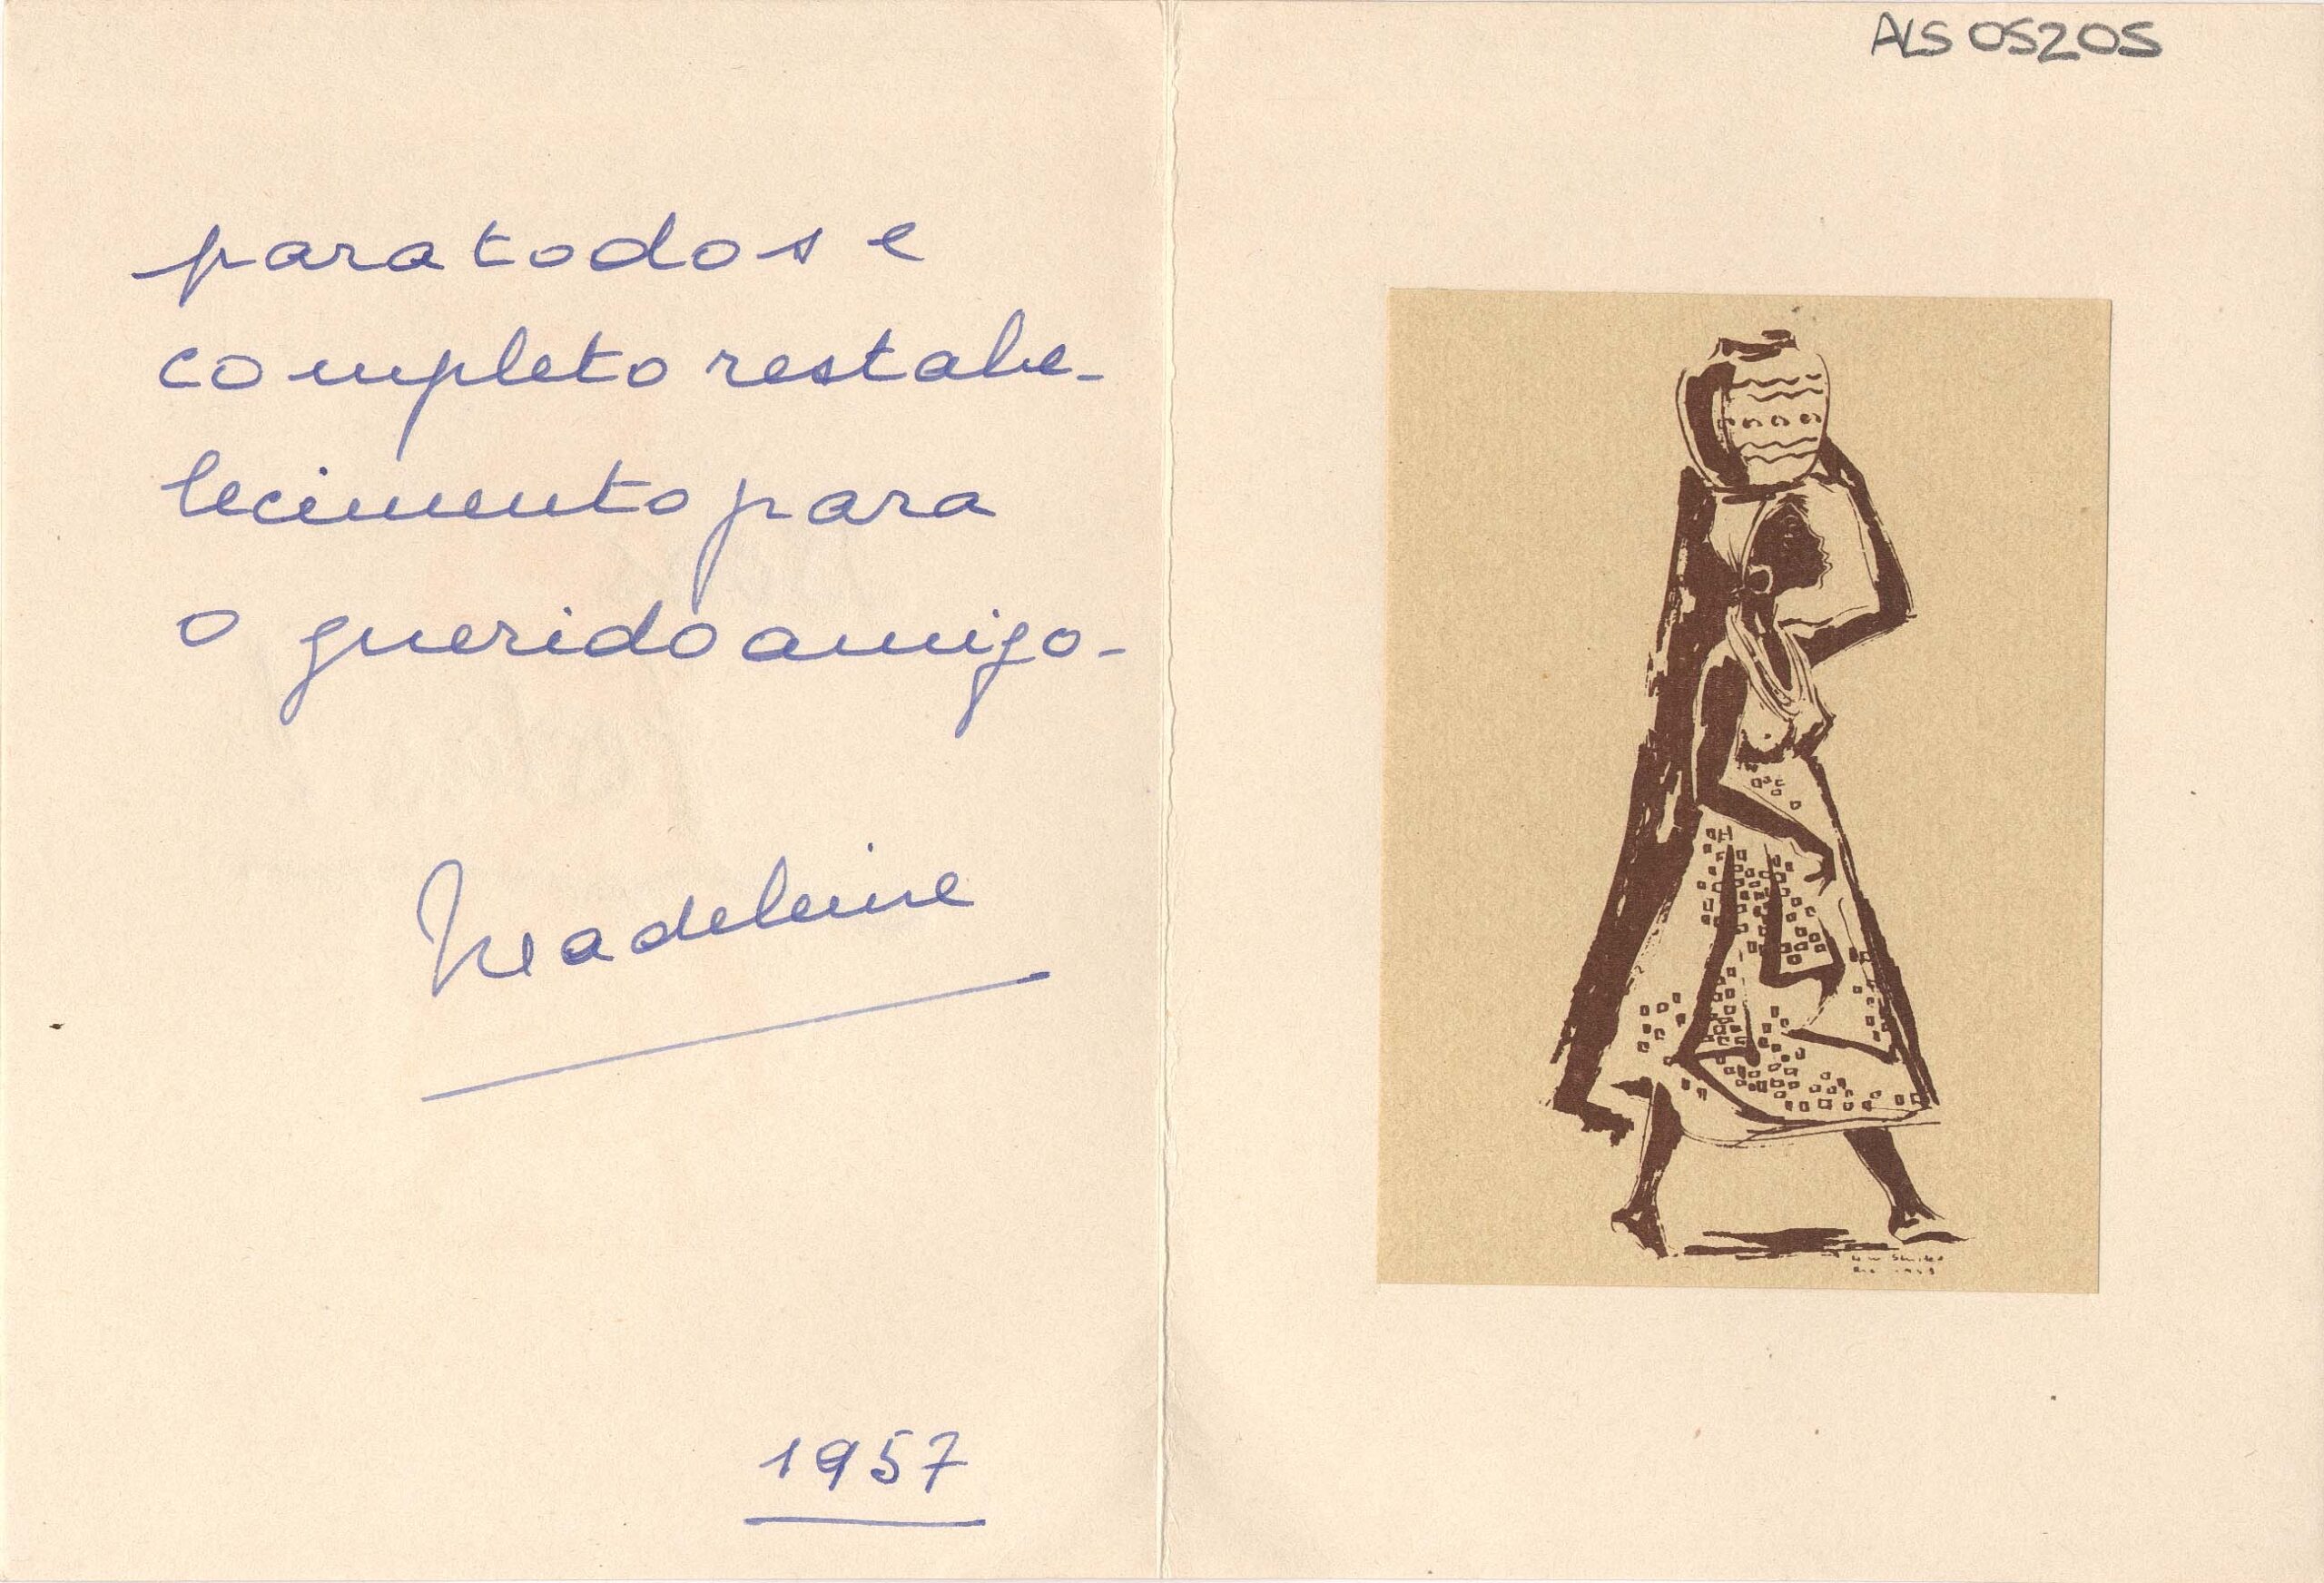 para todos e
completo restabe-
lecimento para
o querido amigo-
Madeleine
1957
ALS 05205